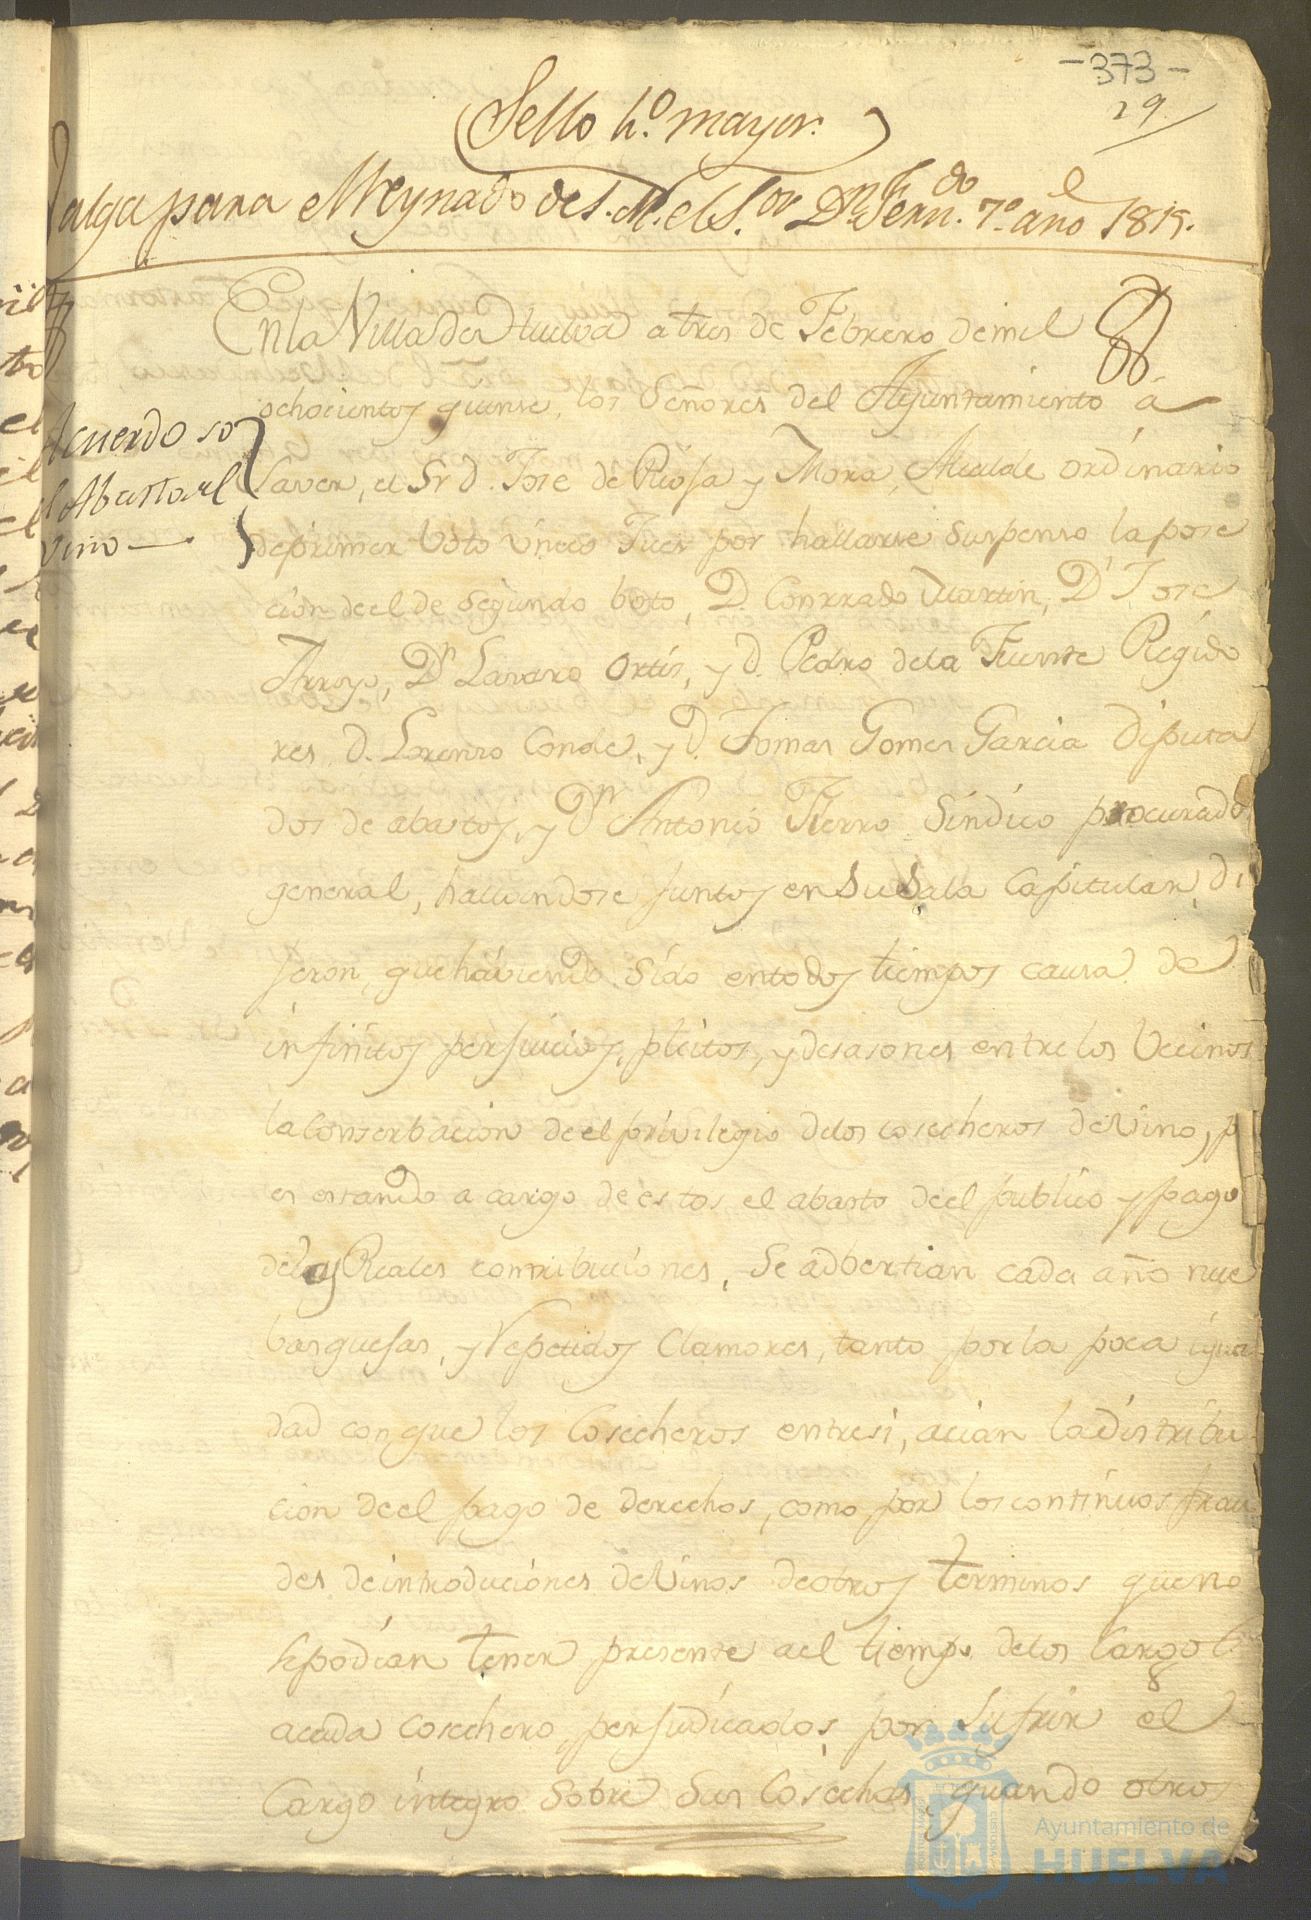 -373-
29
Sello 4.º mayor.
Valga para el Reynado de S. M. el S.or D.n Fern.do 7.º año de 1815.
Acuerdo so
el Abasto del
vino
En la Villa de Huelva a tres de Febrero de mil
ochocientos quinse, los Señores del Ayuntamiento á
saver, el Sr D. Jose de Riosa y Mora, Alcalde ordinario
de primer Voto único Juez por hallarse suspenso la pose
cion de el de segundo boto, D. Conrrado Martin, D.n Jose
Arroyo, D.n Lazaro Ortiz, y D. Pedro de la Fuente Regido
res, D. Lorenzo Conde, y D. Tomas Gomes Garcia Diputa
dos de abastos, y D.n Antonio Fierro Sindico procurado
general, hallandose juntos en su Sala Capitular, di
jeron, que haviendo sido en todos tiempos causa de
infinitos perjuicios, pleitos, y desasones entre los Vecinos
la conserbacion de el privilegio de los cosecheros de Vino, p
es estando a cargo de estos el abasto de el publico y pago
de los Reales contribuciones, se adbertian cada año nue
bas quejas, y repetidos clamores, tanto por la poca igua
dad con que los Cosecheros entre si, acian la distribu
cion de el pago de derechos, como por los continuos frau
des de introduciones de Vinos de otros terminos que no
se podian tener presente a el tiempo de los cargos
a cada cosechero, perjudicados por sufrir el
Cargo integro sobre sus Cosechas, quando otros
Ayuntamiento de
HUELVA